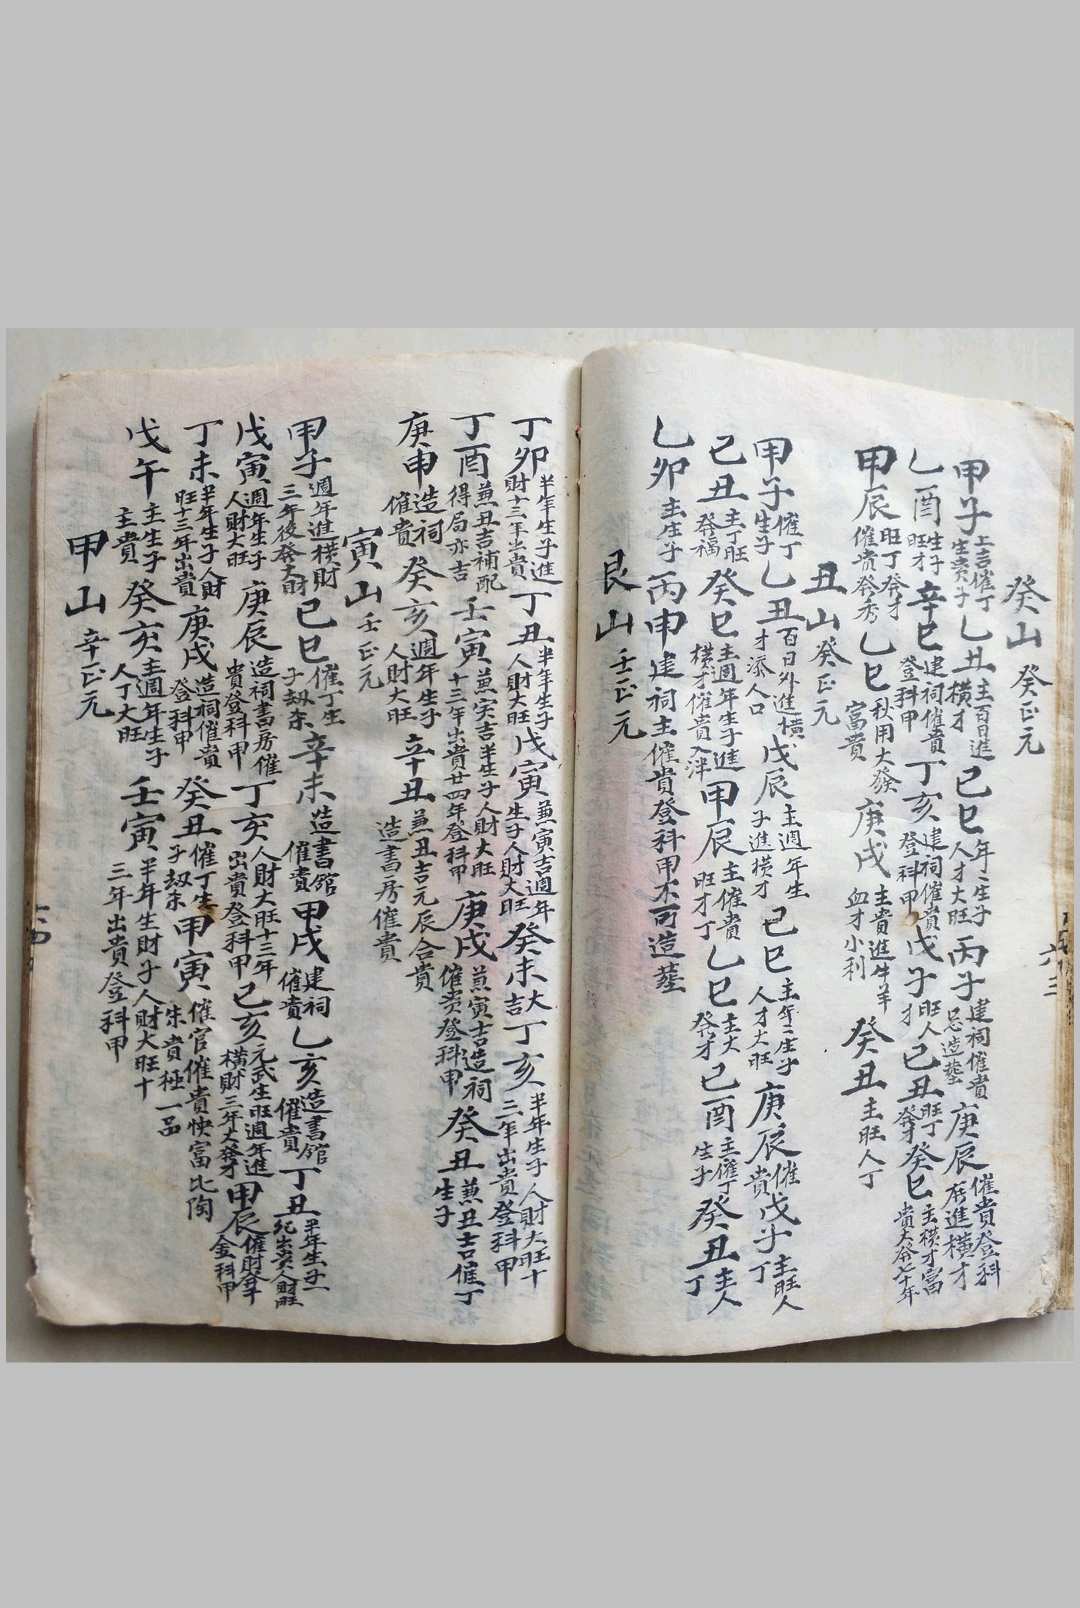 癸山 癸正元
甲子 上吉催丁生貴子 乙丑 主百日進横才 己巳 年年生子人才大旺 丙子 建祠催貴忌造塟 庚辰 催貴登科 進横才
乙酉 生子旺才 辛巳 建祠催貴登科甲 丁亥 建祠催貴登科甲 戊子 旺人才 己丑 旺丁發才 癸巳 主横才富貴大發七十年
甲辰 旺丁發才催貴發秀 乙巳 秋用大發富貴 庚戌 主貴進牛羊血才小利 癸丑 主旺人丁
丑山 癸正元
甲子 催丁生子 乙丑 百日外進横才添人口 戊辰 主週年生子進横才 己巳 主年年生子人才大旺 庚辰 催貴 戊子 主旺人丁
己丑 主丁旺發福 癸巳 主週年生子進横才催貴入泮 甲辰 主催貴旺才丁 乙巳 主大發才 己酉 主催丁生子 癸丑 主人丁
乙卯 主生子 丙申 建祠主催貴登科甲不可造塟
艮山 壬正元
丁卯 半年生子進財十三年出貴 丁丑 半年生子人財大旺 戊寅 兼寅吉週年生子人財大旺 癸未 大吉 丁亥 半年生子人財大旺十三年出貴登科甲
丁酉 兼丑吉補配得局亦吉 壬寅 兼寅吉半年生子人財大旺十三年出貴廿四年登科甲 庚戌 兼寅吉造祠催貴登科甲 癸丑 兼丑吉催丁生子
庚申 造祠催貴 癸亥 週年生子人財大旺 辛丑 兼丑吉元辰合貴造書房催貴
寅山 壬正元
甲子 週年進横財三年後發大財 己巳 催丁生子刼杀 辛未 造書館催貴 甲戌 建祠催貴 乙亥 造書館催貴 丁丑 半年生子
戊寅 週年生子人財大旺 庚辰 造祠書房催貴登科甲 丁亥 人財大旺十三年出貴登科甲 己亥 元武生旺週年進横財三年大發才 甲辰 金科甲
丁未 半年生子人財旺十三年出貴 庚戌 造祠催貴登科甲 癸丑 催丁生子刼杀 甲寅 催官催貴快富比陶朱貴極一品
戊午 主生子主貴 癸亥 主週年生子人丁大旺 壬寅 半年生財子人財大旺十三年出貴登科甲
甲山 辛正元
六三